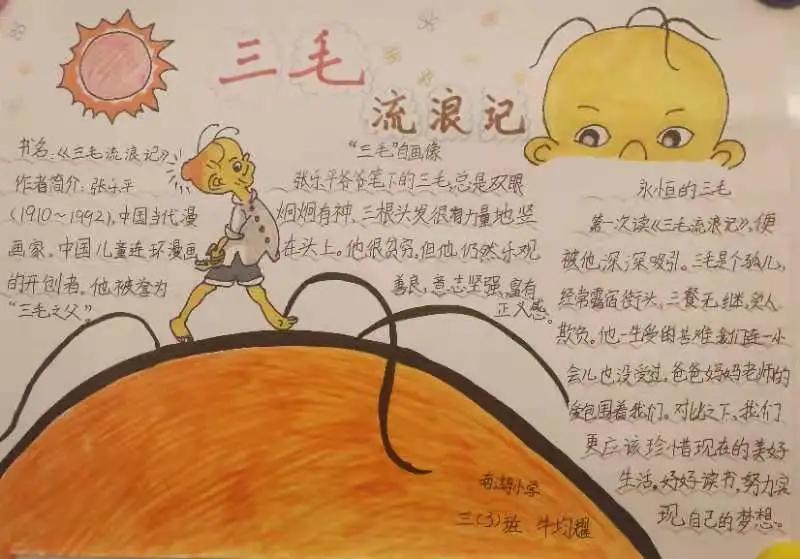 三毛
流浪记
书名:《三毛流浪记》
作者简介:张乐平
(1910～1992),中国当代漫
画家。中国儿童连环漫画
的开创者。他被誉为
“三毛之父”。
“三毛”自画像
张乐平爷爷笔下的三毛,总是双眼
炯炯有神,三根头发很有力量地竖
在头上。他很贫穷,但他仍然乐观
善良,意志坚强,富有
正义感。
永恒的三毛
第一次读《三毛流浪记》,便
被他深深吸引。三毛是个孤儿,
经常露宿街头,三餐无继,受人
欺负。他一生受的苦难我们连一小
会儿也没受过,爸爸妈妈老师的
爱包围着我们。对比之下,我们
更应该珍惜现在的美好
生活。好好读书,努力实
现自己的梦想。
南湖小学
三(3)班 牛均耀